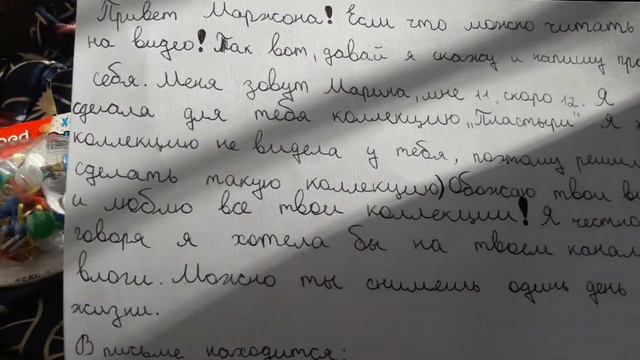 Привет Маржона! Если что можно читать
на видео! Так вот, давай я скажу и напишу про
себя. Меня зовут Марина, мне 11, скоро 12. Я
сделала для тебя коллекцию „Пластыри" я
коллекцию не видела у тебя, поэтому решил
сделать такую коллекцию) Обожаю твои ви
и люблю все твои коллекции! Я честно
говоря я хотела бы на твоем канал
влоги. Можно ты снимешь один день
жизни.
В письме находится: